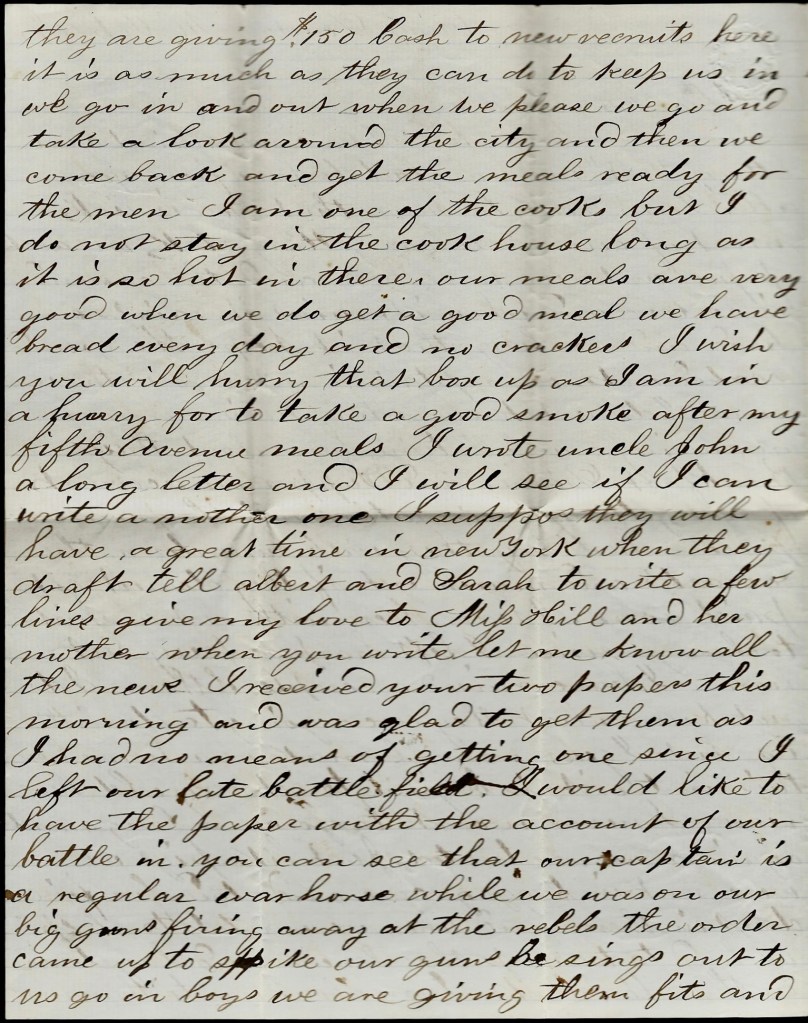 they are giving $150 Cash to new recruits here
it is as much as they can do to keep us in
we go in and out when we please we go and
take a look around the city and then we
come back and get the meals ready for
the men I am one of the cooks but I
do not stay in the cook house long as
it is so hot in there, our meals are very
good when we do get a good meal we have
bread every day and no crackers I wish
you will hurry that box up as I am in
a hurry for to take a good smoke after my
fifth Avenue meals I wrote uncle John
a long letter and I will see if I can
write a nother one I suppos they will
have a great time in new York when they
draft tell albert and Sarah to write a few
lines give my love to Miss Hill and her
mother when you write let me know all
the news I received your two papers this
morning and was glad to get them as
I had no means of getting one since I
left our late battle field. I would like to
have the paper with the account of our
battle in. you can see that our captain is
a regular war horse while we was on our
big guns firing away at the rebels the order
came up to spike our guns he sings out to
us go in boys we are giving them fits and